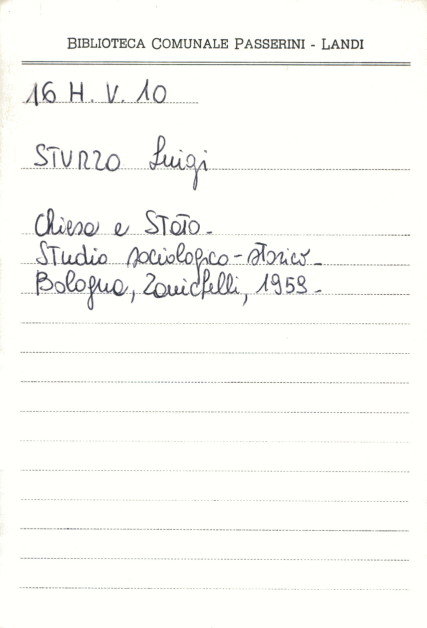 BIBLIOTECA COMUNALE PASSERINI - LANDI
16 H. V. 10
STURZO Luigi
Chiesa e Stato.
Studio sociologico-storico.
Bologna, Zanichelli, 1959.